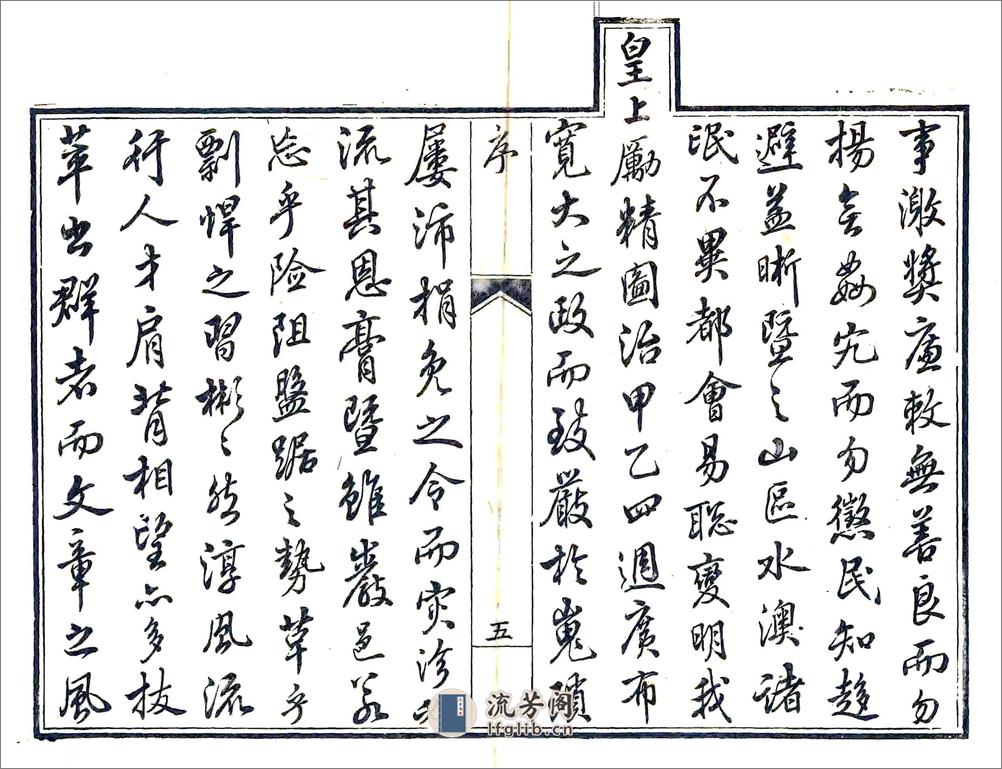 事激獎廉敕無善良而勿
揚無姦宄而勿懲民知趨
避益晰暨之山區水澳諸
氓不異都會易聡變明我
皇上勵精圖治甲乙四週廣布
寬大之政而致嚴於嵬瑣
序
五
屢沛捐免之令而灾沴
流其恩膏暨雖巖邑羕
忘乎險阻盤踞之勢草乎
剽悍之習彬〻然淳風流
行人才肩背相望亦多拔
萃出群者而文章之風
流芳阁
lfglib.cn